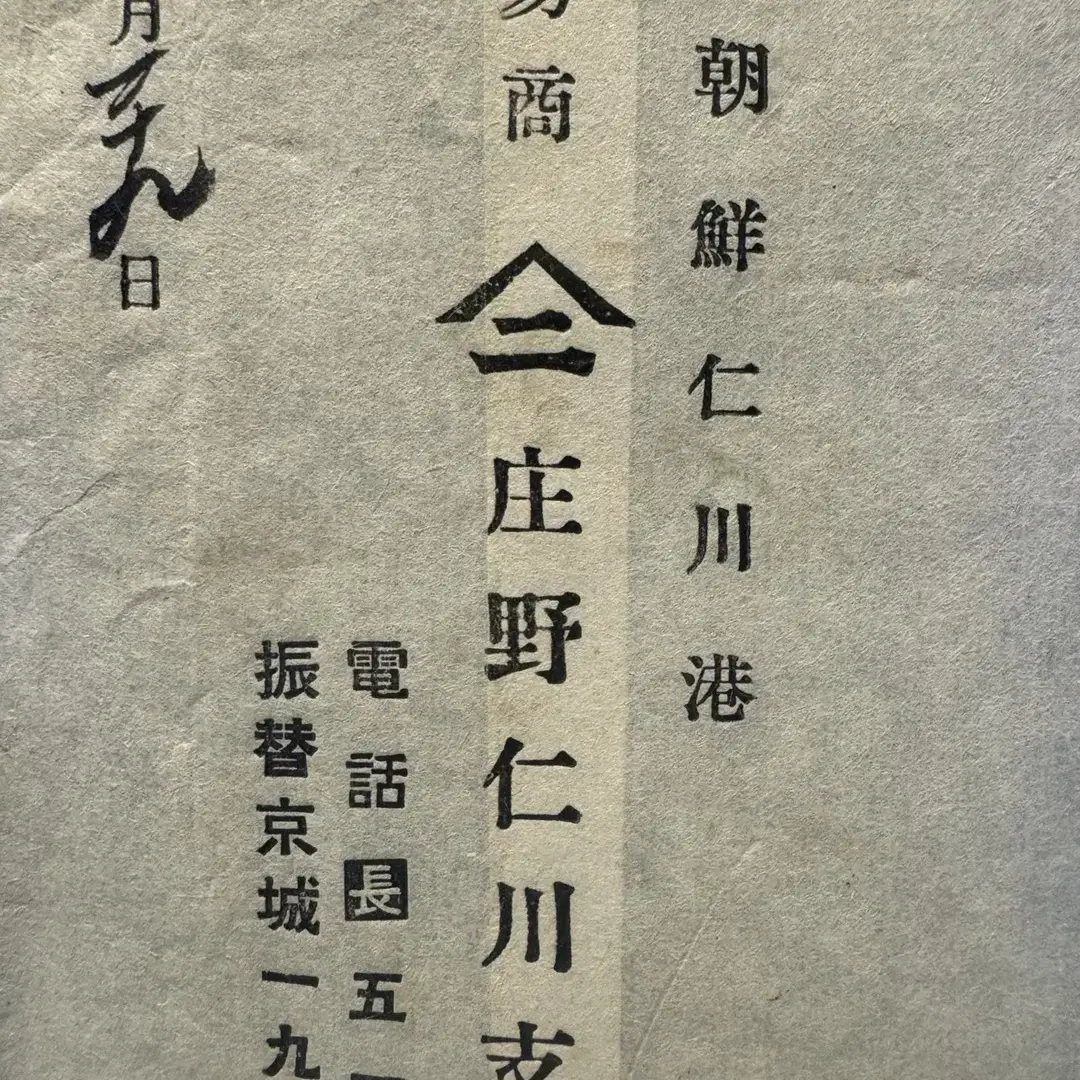 朝鮮仁川港
商 二 庄野仁川支
電話長五
振替京城一九
月二十九日